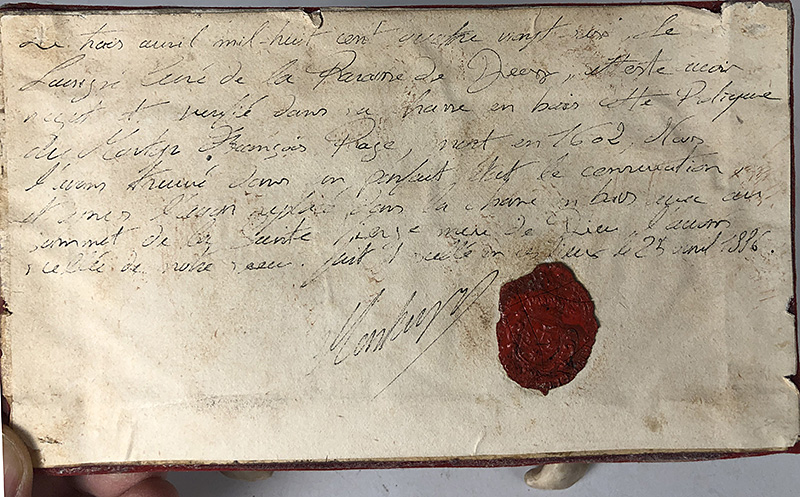 Le trois avril mil-huit cent quatre vingt six, Le
Curé de la Paroisse de atteste avoir
reçut et verifié dans sa chasse en bois cette Relique
du Martyr François Page, mort en 1602. Nous
l'avons trouvé dans un parfait état de conservation
et avons replacé dans la chasse en bois avec au
sommet de la Sainte Vierge mère de Dieu, l'avons
scellé de notre sceau. fait et scellé en ce lieu le 25 avril 1886.